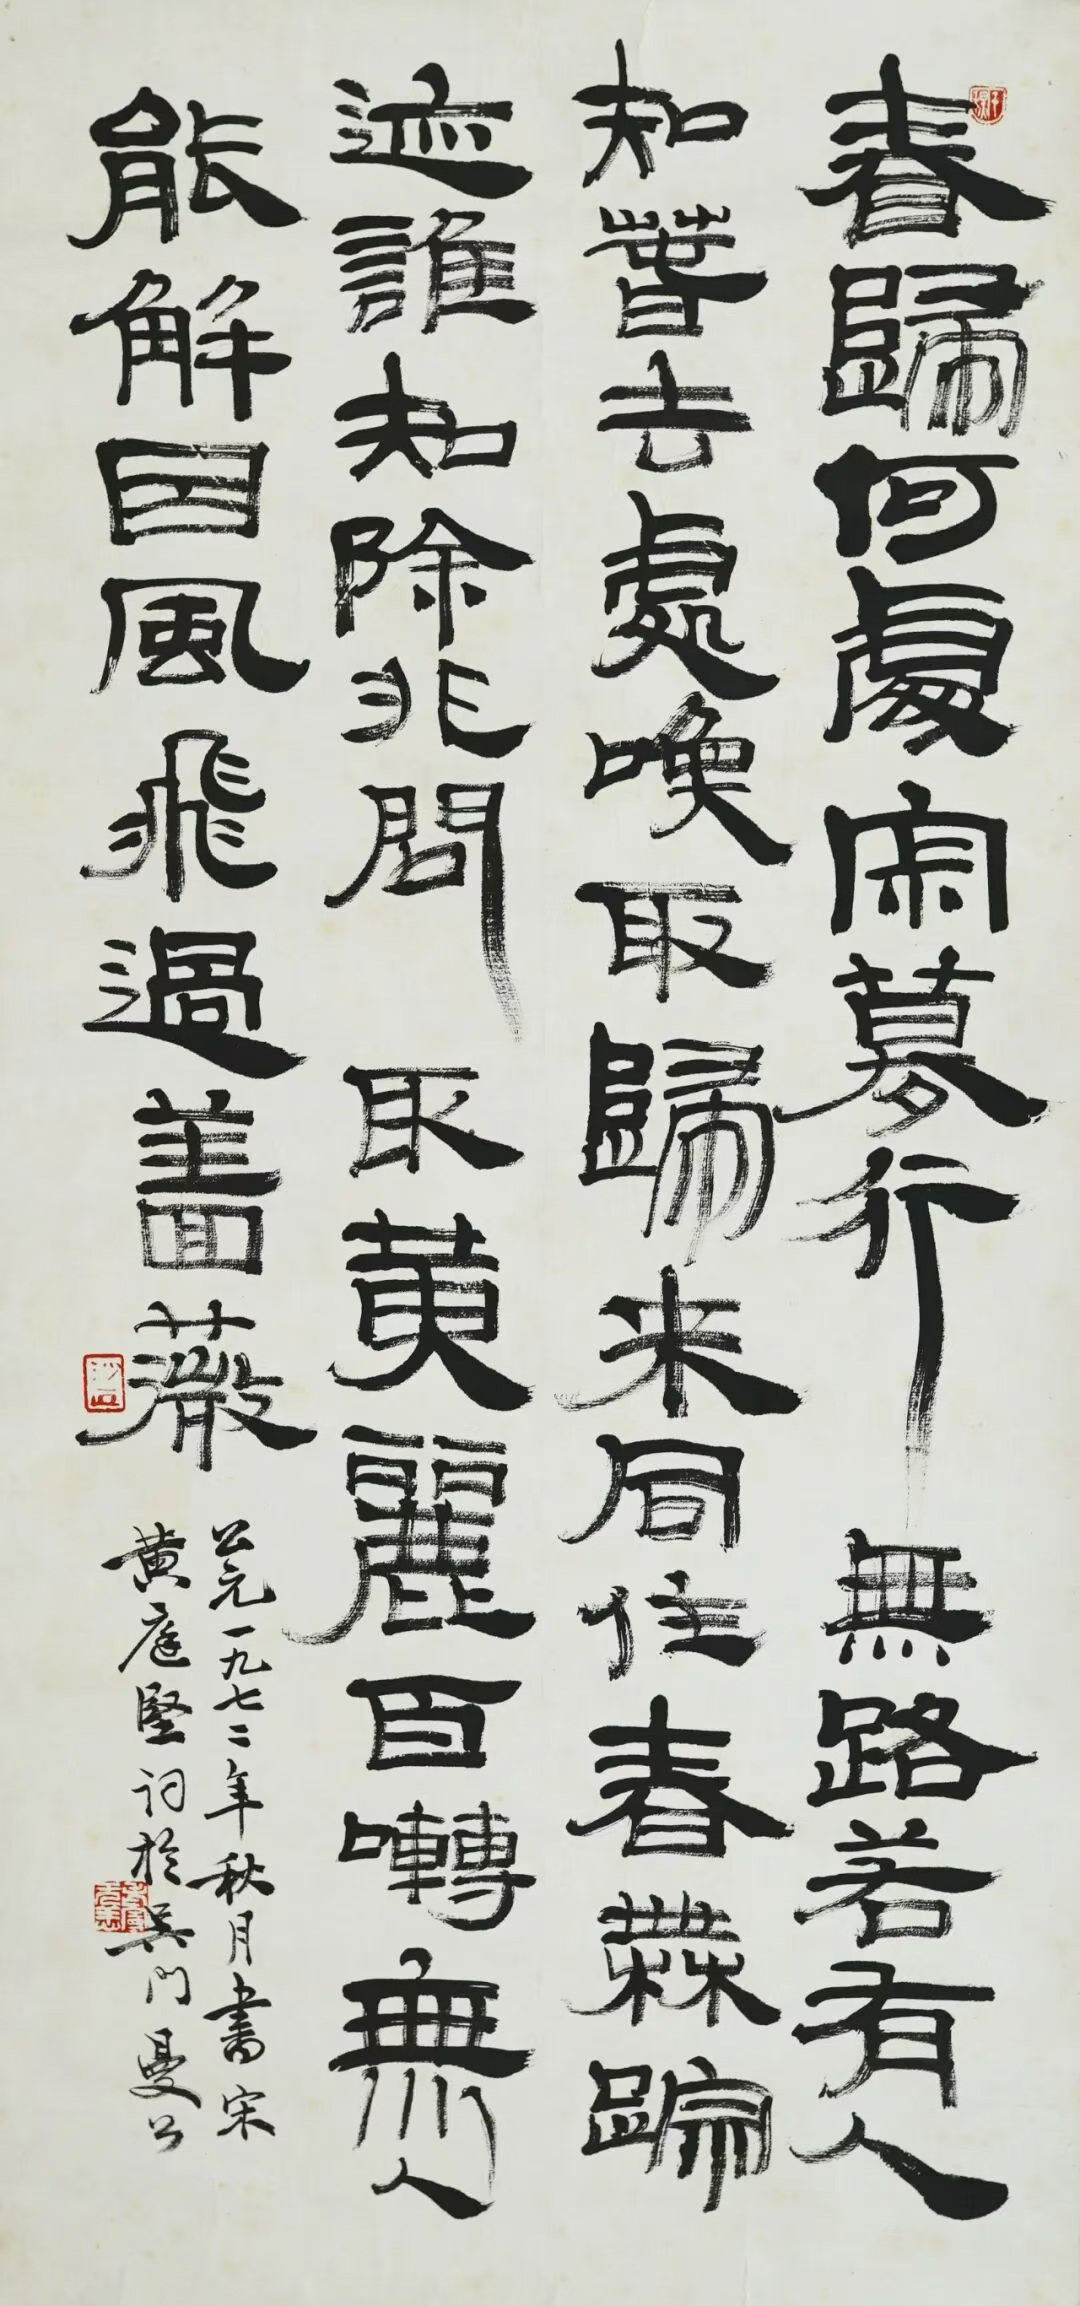 春歸何處寂寞行無路若有人
知萅去處喚取歸來同住春無蹤
迹誰知除非問取黃麗百囀無人
能解因風飛過薔薇
公元一九七二年秋月書宋
黄庭堅詞於吴門曼公